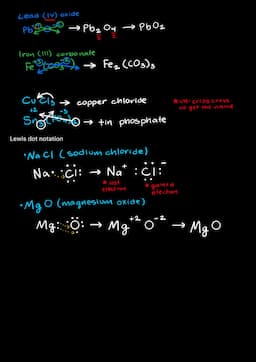 Lead (IV) oxide
Pb O → Pb₂ O₄ → PbO₂
Iron (III) carbonate
Fe CO₃ → Fe₂(CO₃)₃
CuCl₃ → copper chloride
*un-criss cross to get the name
Sn → tin phosphate
Lewis dot notation
•NaCl (sodium chloride)
Na· :Cl: → Na⁺ :Cl:⁻
*lost electron
*gained electron
•MgO (magnesium oxide)
Mg: :O: → Mg⁺² O⁻² → MgO